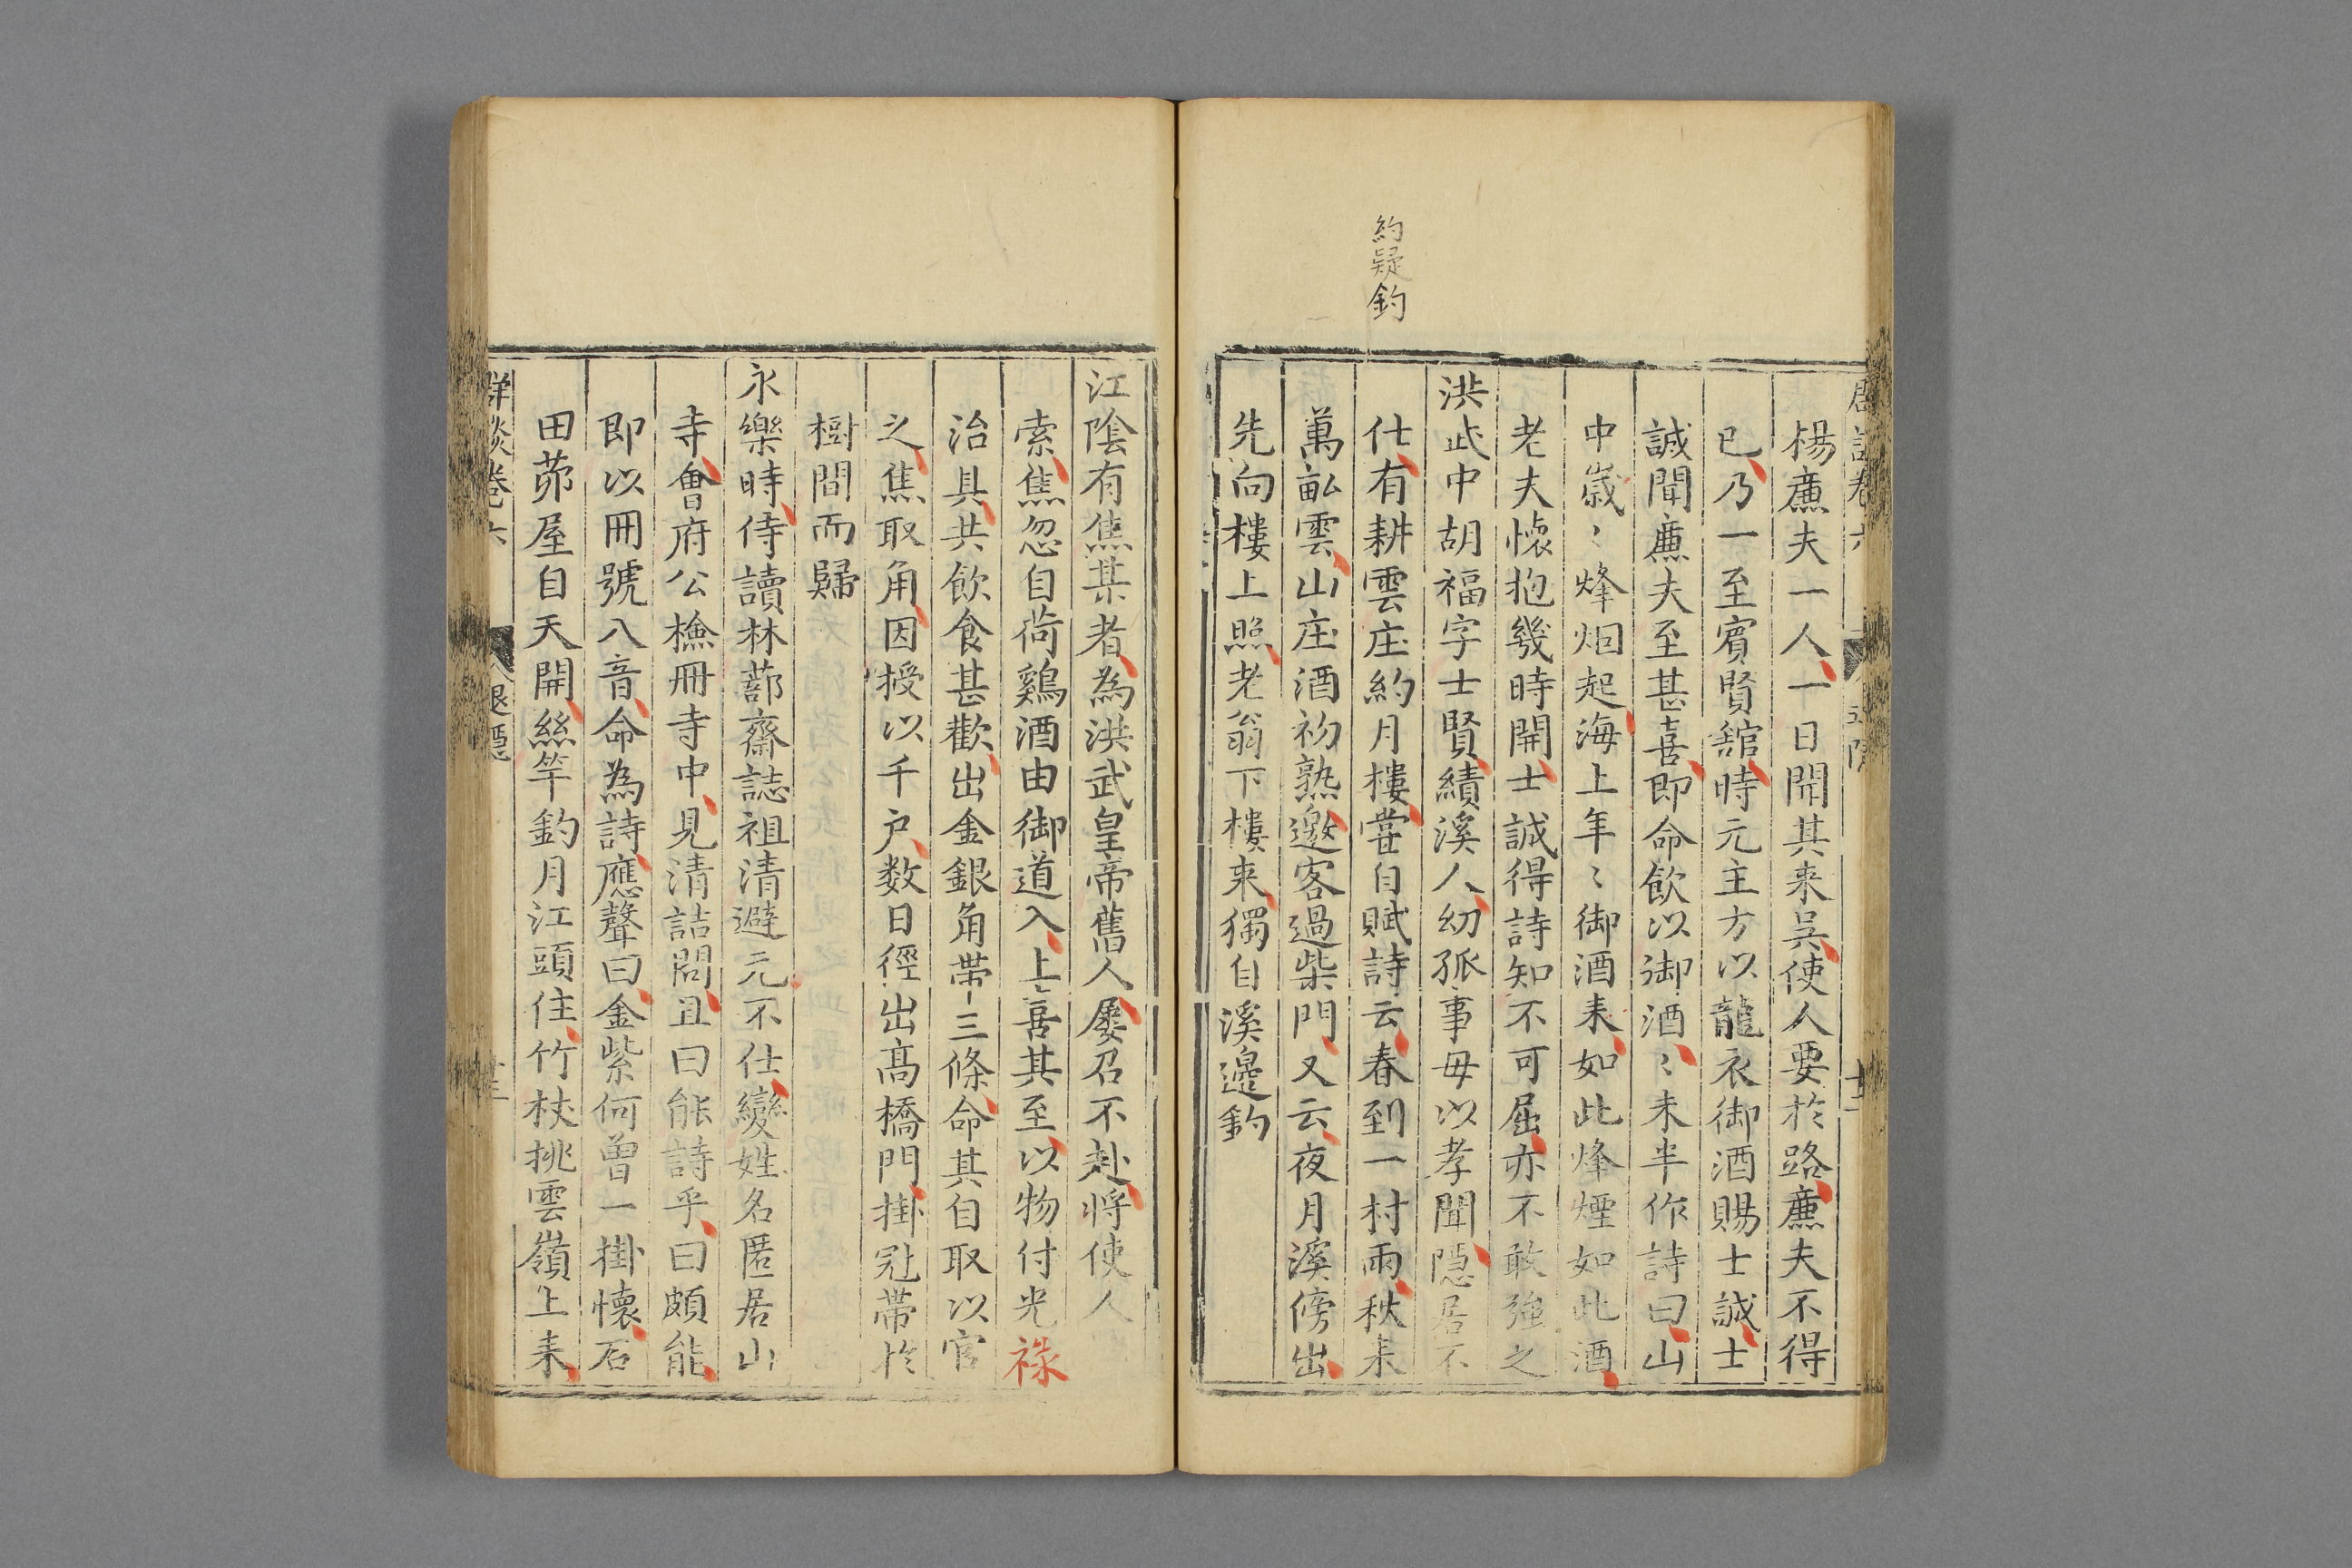 約疑釣
楊亷夫一人一日聞其来吳使人要於路亷夫不得
已乃一至賓賢舘時元主方以龍衣御酒賜士誠士
誠聞亷夫至甚喜即命飲以御酒〻未半作詩曰山
中歲〻烽烟起海上年〻御酒来如此烽煙如此酒
老夫懷抱幾時開士誠得詩知不可屈亦不敢強之
洪武中胡福字士賢績溪人幼孤事母以孝聞隱居不
仕有耕雲庄約月樓甞自賦詩云春到一村雨秋来
萬畝雲山庄酒初熟邀客過柴門又云夜月溪傍出
先向樓上照老翁下樓来獨自溪邉釣
江陰有焦某者為洪武皇帝舊人屡召不赴将使人
索焦忽自荷鷄酒由御道入上喜其至以物付光禄
治具共飲食甚歡出金銀角帶三條命其自取以官
之焦取角因授以千户数日徑出髙橋門掛冠帶於
樹間而歸
永樂時侍讀林蔀齋誌祖清避元不仕變姓名匿居山
寺會府公檢冊寺中見清詰問且曰能詩乎曰頗能
即以冊號八音命為詩應聲曰金紫何曾一掛懷石
田茆屋自天開絲竿釣月江頭住竹杖挑雲嶺上来
群談卷六
退隱